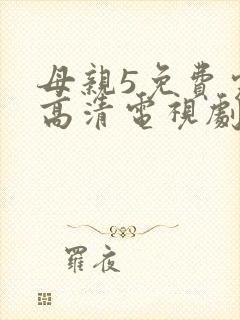 母親5免費
高清電視劇
羅夜